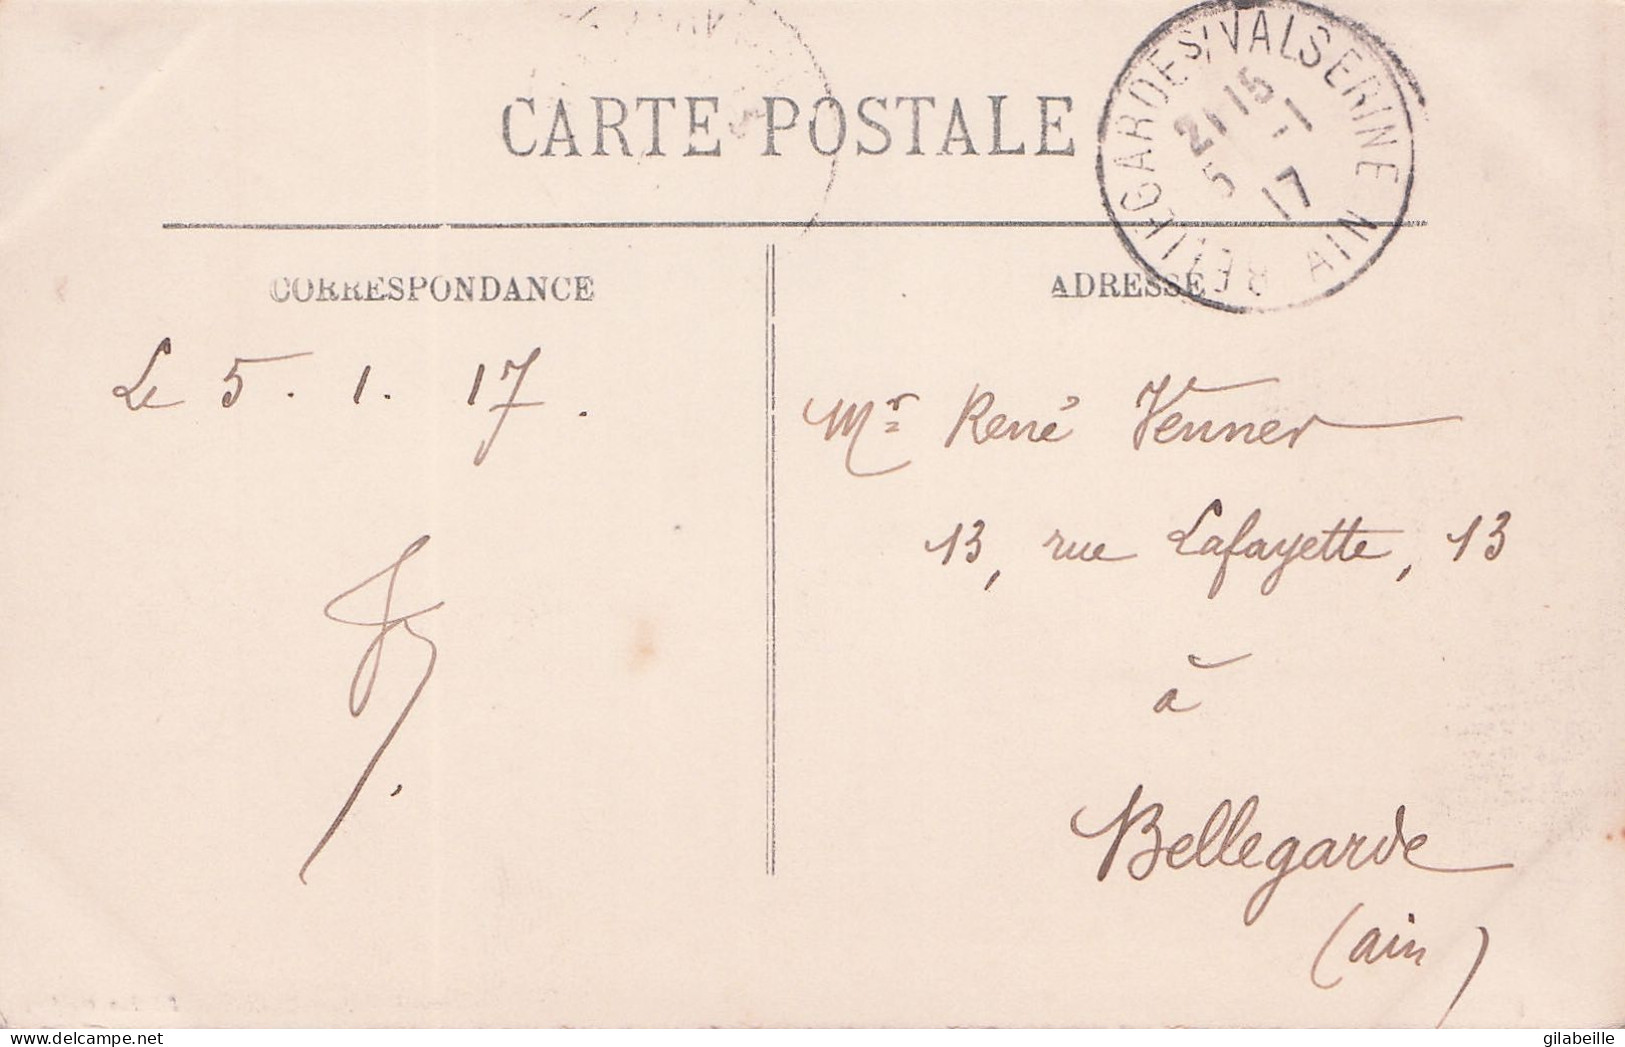 CARTE POSTALE
BELLEGARDE S/VALSERINE
AIN
21 15
5 -1
17
CORRESPONDANCE
ADRESSE
Le 5. 1. 17.
Mr René Venner
13, rue Lafayette, 13
à
Bellegarde
(ain)
gilabeille